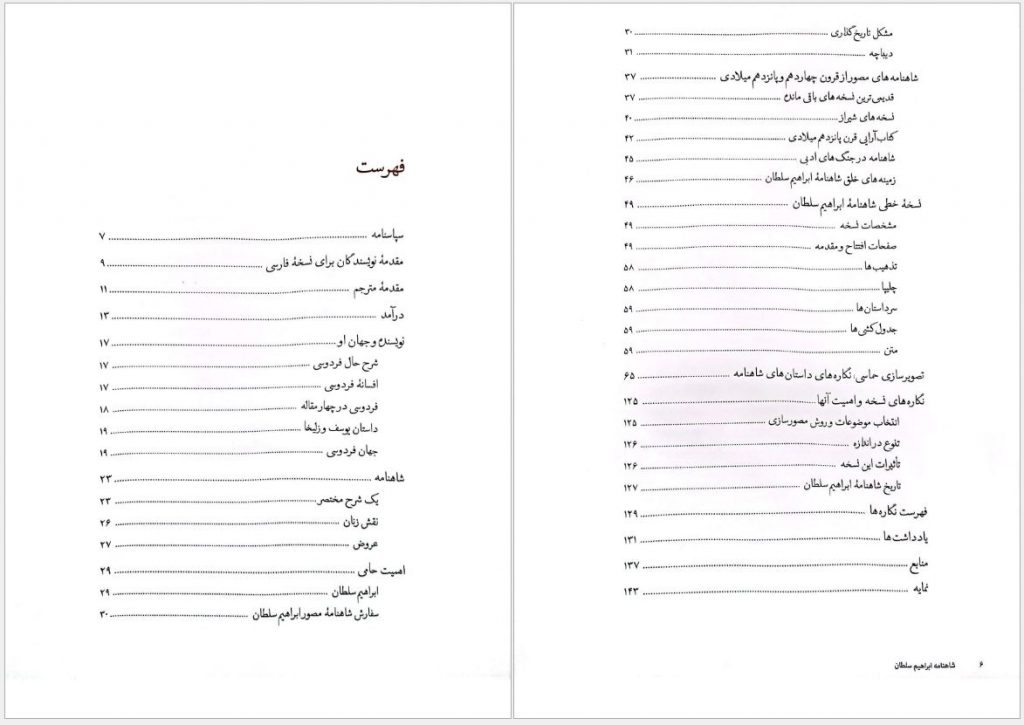 فهرست
سپاسنامه ۷
مقدمهٔ نویسندگان برای نسخهٔ فارسی ۹
مقدمهٔ مترجم ۱۱
درآمد ۱۳
نویسنده و جهان او ۱۷
شرح حال فردوسی ۱۷
افسانهٔ فردوسی ۱۷
فردوسی در چهار مقاله ۱۸
داستان یوسف و زلیخا ۱۹
جهان فردوسی ۱۹
شاهنامه ۲۳
یک شرح مختصر ۲۳
نقش زنان ۲۶
عروض ۲۷
اهمیت حامی ۲۹
ابراهیم سلطان ۲۹
سفارش شاهنامهٔ مصور ابراهیم سلطان ۳۰
مشکل تاریخ‌گذاری ۳۰
دیباچه ۳۱
شاهنامه‌های مصور از قرون چهاردهم و پانزدهم میلادی ۳۷
قدیمی‌ترین نسخه‌های باقی مانده ۳۷
نسخه‌های شیراز ۴۰
کتاب‌آرایی قرن پانزدهم میلادی ۴۲
شاهنامه در جنگ‌های ادبی ۴۵
زمینه‌های خلق شاهنامهٔ ابراهیم سلطان ۴۶
نسخهٔ خطی شاهنامهٔ ابراهیم سلطان ۴۹
مشخصات نسخه ۴۹
صفحات افتتاح و مقدمه ۴۹
تذهیب‌ها ۵۸
چلیپا ۵۸
سرداستان‌ها ۵۹
جدول‌کشی‌ها ۵۹
متن ۵۹
تصویرسازی حماسی: نگاره‌های داستان‌های شاهنامه ۶۵
نگاره‌های نسخه و اهمیت آنها ۱۲۵
انتخاب موضوعات و روش مصورسازی ۱۲۵
تنوع در اندازه ۱۲۶
تأثیرات این نسخه ۱۲۶
تاریخ شاهنامهٔ ابراهیم سلطان ۱۲۷
فهرست نگاره‌ها ۱۲۹
یادداشت‌ها ۱۳۱
منابع ۱۳۷
نمایه ۱۴۳
۶ شاهنامه ابراهیم سلطان